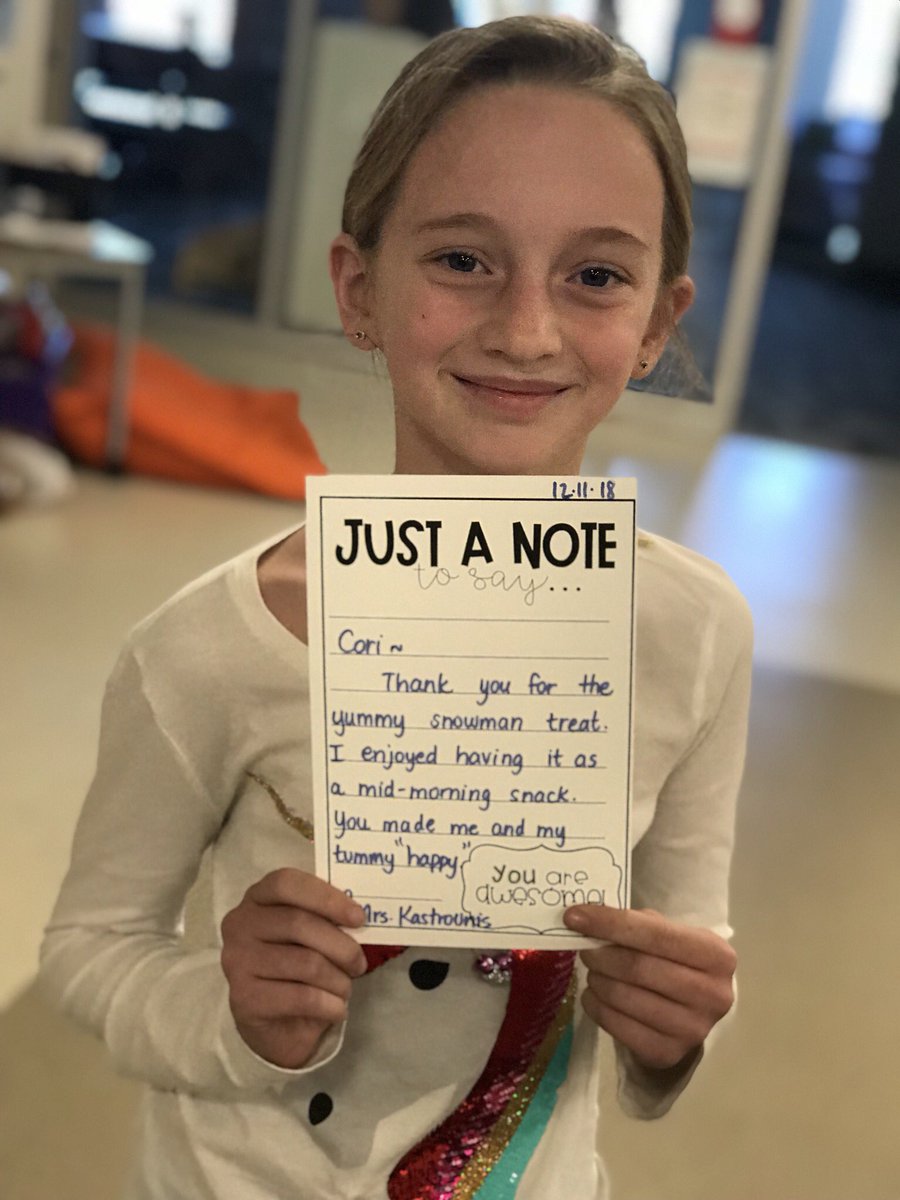 12.11.18
JUST A NOTE
to say...
Cori ~
Thank you for the
yummy snowman treat.
I enjoyed having it as
a mid-morning snack.
You made me and my
tummy "happy"
you are
awesome!
Mrs. Kastrounis